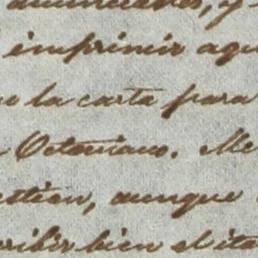 imprimir aqu
la carta para
Octaviano. Me
estion, aunque
cribir bien el ita